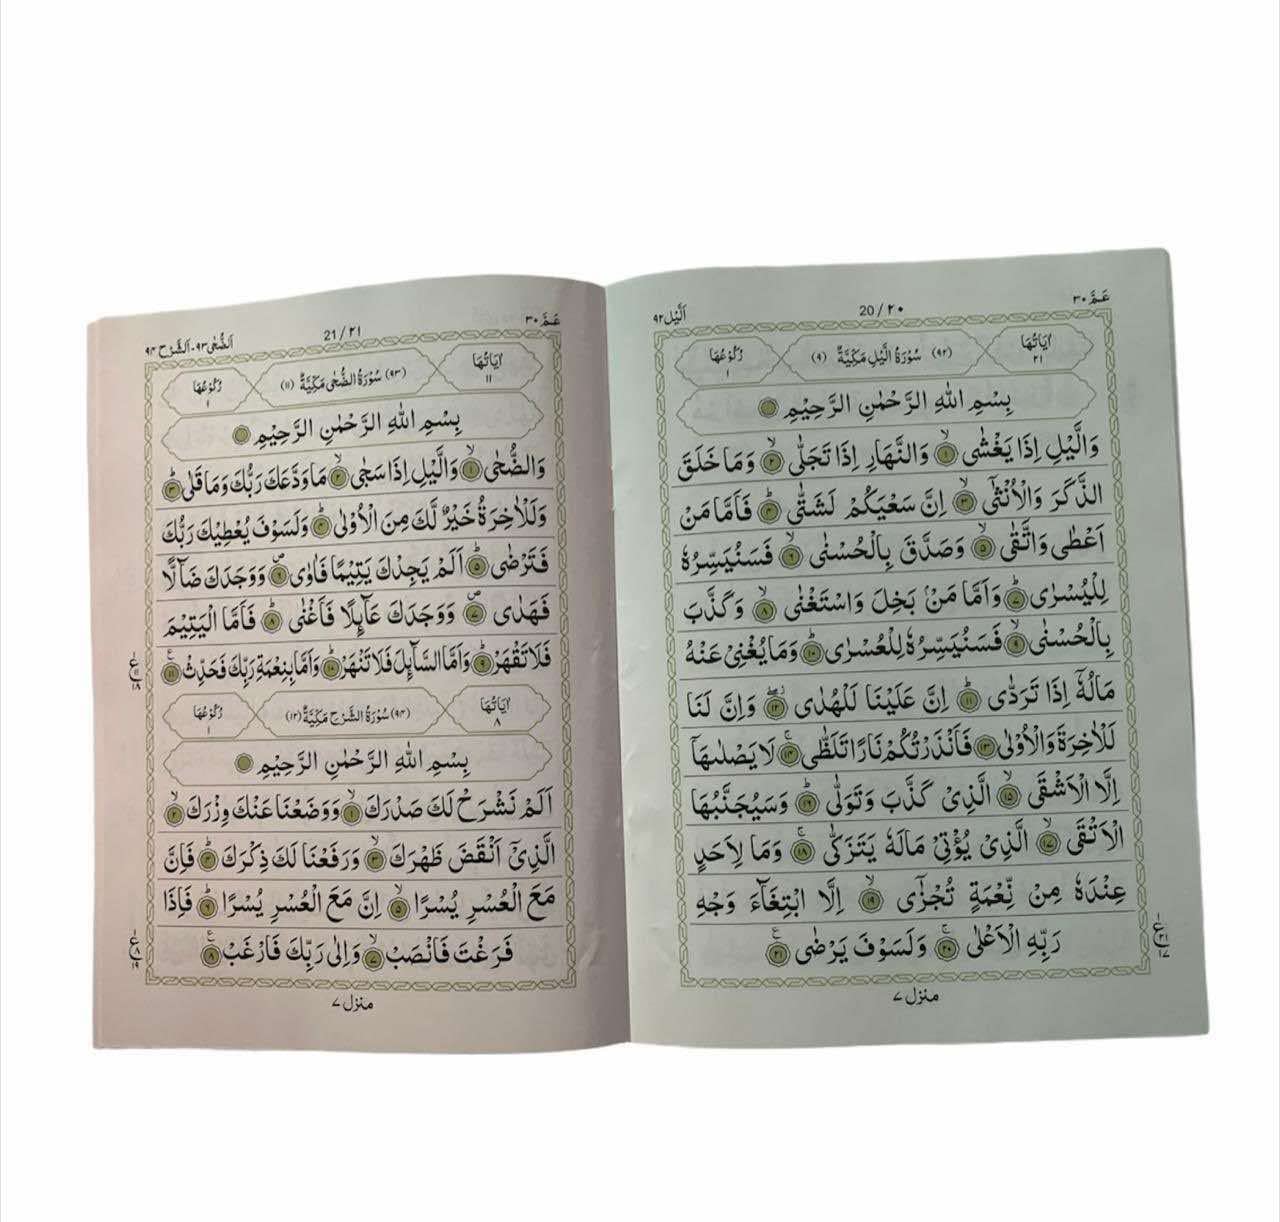 عَمَّ ٣٠
20 / ٢٠
اَلَّيْل ٩٢
اٰيَاتُهَا ٢١
(٩٢) سُوْرَةُ الَّيْلِ مَكِّيَّةٌ (٩)
رُكُوْعُهَا ١
بِسْمِ اللّٰهِ الرَّحْمٰنِ الرَّحِيْمِ
وَالَّيْلِ اِذَا يَغْشٰى ۙ﴿١﴾ وَالنَّهَارِ اِذَا تَجَلّٰى ۙ﴿٢﴾ وَمَا خَلَقَ
الذَّكَرَ وَالْاُنْثٰٓى ۙ﴿٣﴾ اِنَّ سَعْيَكُمْ لَشَتّٰى ؕ﴿٤﴾ فَاَمَّا مَنْ
اَعْطٰى وَاتَّقٰى ۙ﴿٥﴾ وَصَدَّقَ بِالْحُسْنٰى ۙ﴿٦﴾ فَسَنُيَسِّرُهٗ
لِلْيُسْرٰى ؕ﴿٧﴾ وَاَمَّا مَنْۢ بَخِلَ وَاسْتَغْنٰى ۙ﴿٨﴾ وَكَذَّبَ
بِالْحُسْنٰى ۙ﴿٩﴾ فَسَنُيَسِّرُهٗ لِلْعُسْرٰى ؕ﴿١٠﴾ وَمَا يُغْنِىْ عَنْهُ
مَالُهٗٓ اِذَا تَرَدّٰى ؕ﴿١١﴾ اِنَّ عَلَيْنَا لَلْهُدٰى ﴿١٢﴾ وَاِنَّ لَنَا
لَلْاٰخِرَةَ وَالْاُوْلٰى ﴿١٣﴾ فَاَنْذَرْتُكُمْ نَارًا تَلَظّٰى ۚ﴿١٤﴾ لَا يَصْلٰىهَاۤ
اِلَّا الْاَشْقَى ۙ﴿١٥﴾ الَّذِىْ كَذَّبَ وَتَوَلّٰى ؕ﴿١٦﴾ وَسَيُجَنَّبُهَا
الْاَتْقَى ۙ﴿١٧﴾ الَّذِىْ يُؤْتِىْ مَالَهٗ يَتَزَكّٰى ۚ﴿١٨﴾ وَمَا لِاَحَدٍ
عِنْدَهٗ مِنْ نِّعْمَةٍ تُجْزٰٓى ۙ﴿١٩﴾ اِلَّا ابْتِغَآءَ وَجْهِ
رَبِّهِ الْاَعْلٰى ۚ﴿٢٠﴾ وَلَسَوْفَ يَرْضٰى ﴿٢١﴾
ع ٢١ ١٧
منزل ٧
عَمَّ ٣٠
21 / ٢١
اَلضُّحٰى ٩٣ - اَلشَّرْح ٩٤
اٰيَاتُهَا ١١
(٩٣) سُوْرَةُ الضُّحٰى مَكِّيَّةٌ (١١)
رُكُوْعُهَا ١
بِسْمِ اللّٰهِ الرَّحْمٰنِ الرَّحِيْمِ
وَالضُّحٰى ۙ﴿١﴾ وَالَّيْلِ اِذَا سَجٰى ۙ﴿٢﴾ مَا وَدَّعَكَ رَبُّكَ وَمَا قَلٰى ؕ﴿٣﴾
وَلَلْاٰخِرَةُ خَيْرٌ لَّكَ مِنَ الْاُوْلٰى ؕ﴿٤﴾ وَلَسَوْفَ يُعْطِيْكَ رَبُّكَ
فَتَرْضٰى ؕ﴿٥﴾ اَلَمْ يَجِدْكَ يَتِيْمًا فَاٰوٰى ۪﴿٦﴾ وَوَجَدَكَ ضَآلًّا
فَهَدٰى ۪﴿٧﴾ وَوَجَدَكَ عَآئِلًا فَاَغْنٰى ؕ﴿٨﴾ فَاَمَّا الْيَتِيْمَ
فَلَا تَقْهَرْ ؕ﴿٩﴾ وَاَمَّا السَّآئِلَ فَلَا تَنْهَرْ ؕ﴿١٠﴾ وَاَمَّا بِنِعْمَةِ رَبِّكَ فَحَدِّثْ ﴿١١﴾
ع ١١ ١٨
اٰيَاتُهَا ٨
(٩٤) سُوْرَةُ الشَّرْحِ مَكِّيَّةٌ (١٢)
رُكُوْعُهَا ١
بِسْمِ اللّٰهِ الرَّحْمٰنِ الرَّحِيْمِ
اَلَمْ نَشْرَحْ لَكَ صَدْرَكَ ۙ﴿١﴾ وَوَضَعْنَا عَنْكَ وِزْرَكَ ۙ﴿٢﴾
الَّذِىْٓ اَنْقَضَ ظَهْرَكَ ۙ﴿٣﴾ وَرَفَعْنَا لَكَ ذِكْرَكَ ؕ﴿٤﴾ فَاِنَّ
مَعَ الْعُسْرِ يُسْرًا ۙ﴿٥﴾ اِنَّ مَعَ الْعُسْرِ يُسْرًا ؕ﴿٦﴾ فَاِذَا
فَرَغْتَ فَانْصَبْ ۙ﴿٧﴾ وَاِلٰى رَبِّكَ فَارْغَبْ ﴿٨﴾
ع ٨ ١٩
منزل ٧